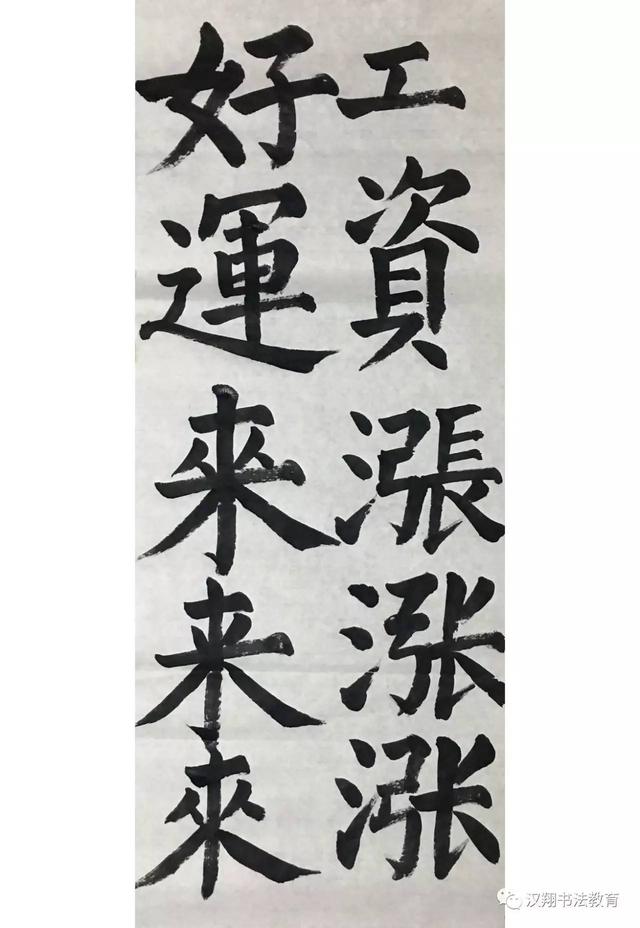 工資漲涨涨
好運來来來
汉翔书法教育